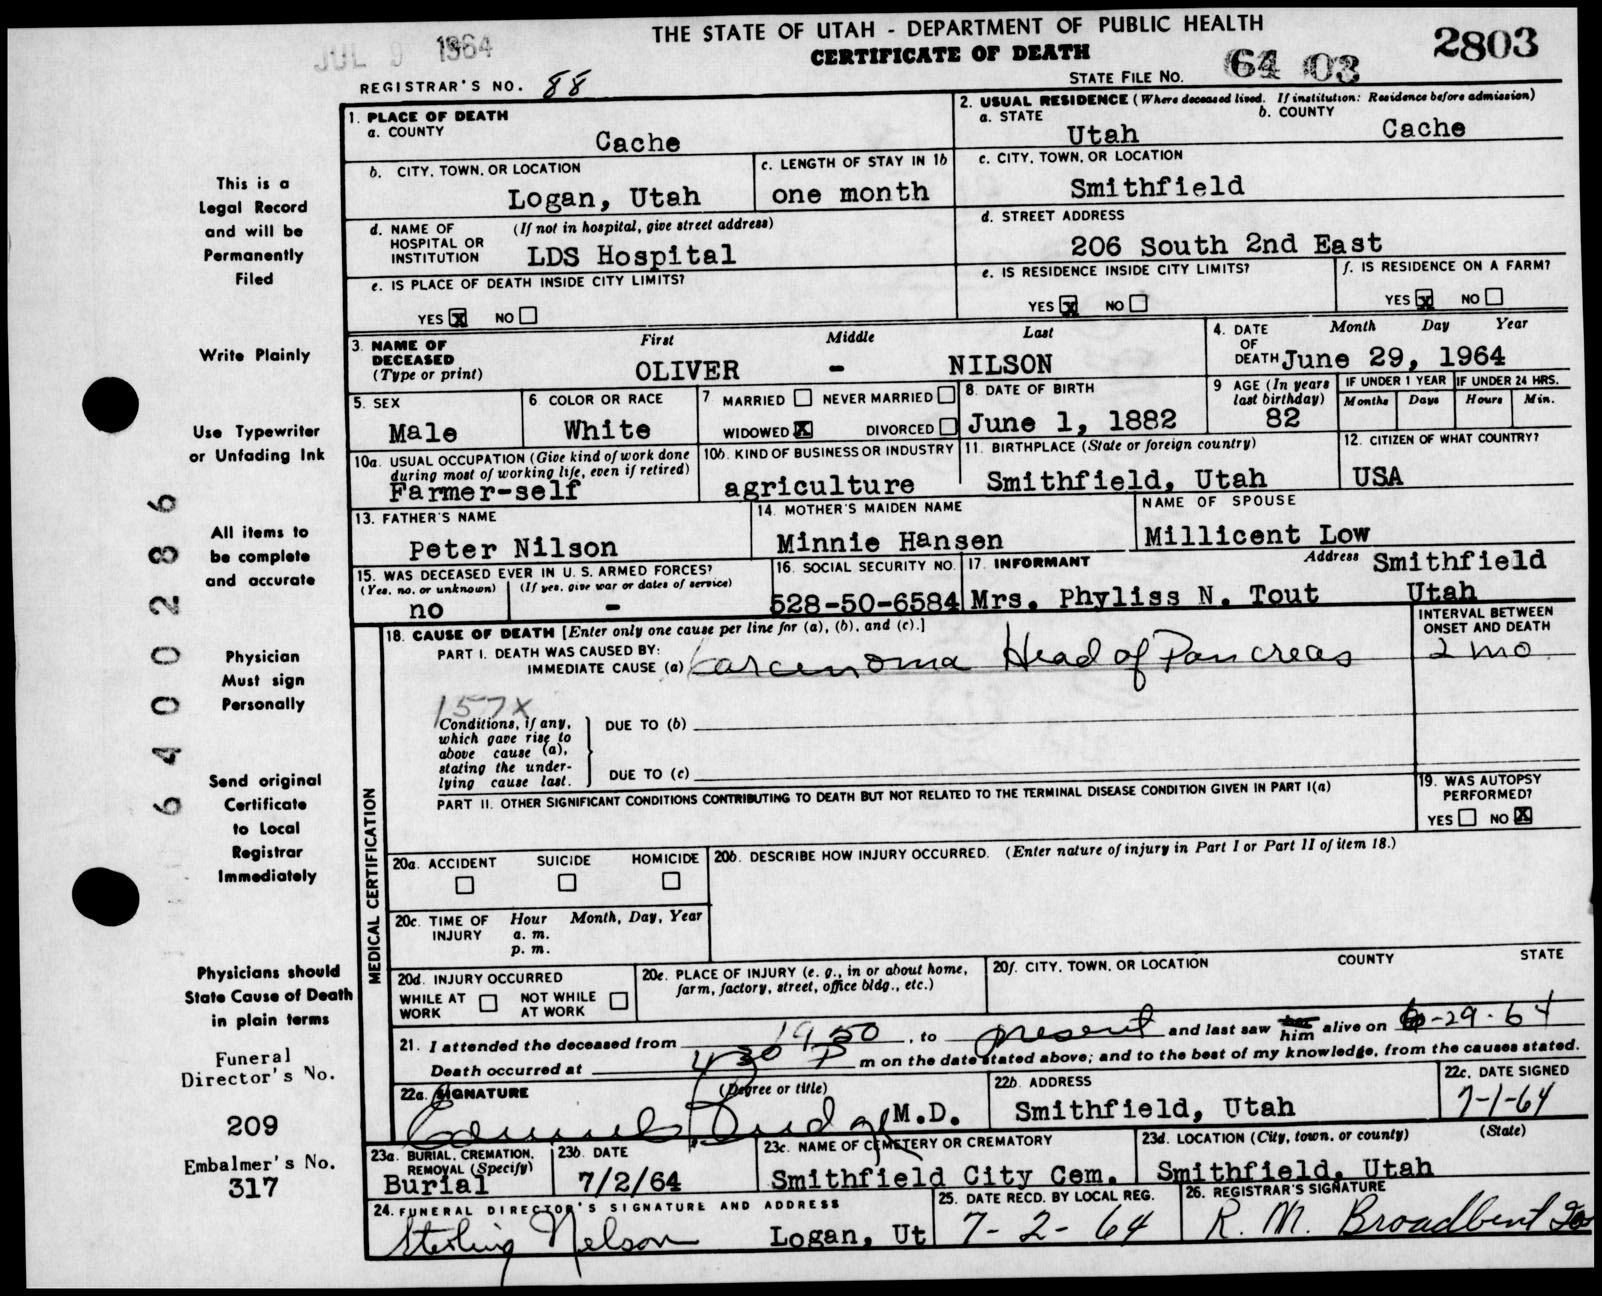 THE STATE OF UTAH - DEPARTMENT OF PUBLIC HEALTH
CERTIFICATE OF DEATH
2803
JUL 9 1964
REGISTRAR'S NO. 88
STATE FILE NO. 64 03
This is a
Legal Record
and will be
Permanently
Filed
Write Plainly
Use Typewriter
or Unfading Ink
All items to
be complete
and accurate
Physician
Must sign
Personally
Send original
Certificate
to Local
Registrar
Immediately
Physicians should
State Cause of Death
in plain terms
Funeral
Director's No.
209
Embalmer's No.
317
64000286
1. PLACE OF DEATH
a. COUNTY
Cache
2. USUAL RESIDENCE (Where deceased lived. If institution: Residence before admission)
a. STATE
Utah
b. COUNTY
Cache
b. CITY, TOWN, OR LOCATION
Logan, Utah
c. LENGTH OF STAY IN 1b
one month
c. CITY, TOWN, OR LOCATION
Smithfield
d. NAME OF HOSPITAL OR INSTITUTION
(If not in hospital, give street address)
LDS Hospital
d. STREET ADDRESS
206 South 2nd East
e. IS PLACE OF DEATH INSIDE CITY LIMITS?
YES X NO
e. IS RESIDENCE INSIDE CITY LIMITS?
YES X NO
f. IS RESIDENCE ON A FARM?
YES X NO
3. NAME OF DECEASED
(Type or print)
First Middle Last
OLIVER - NILSON
4. DATE OF DEATH
Month Day Year
June 29, 1964
5. SEX
Male
6. COLOR OR RACE
White
7 MARRIED NEVER MARRIED
WIDOWED X DIVORCED
8. DATE OF BIRTH
June 1, 1882
9 AGE (In years last birthday)
82
IF UNDER 1 YEAR
Months Days
IF UNDER 24 HRS.
Hours Min.
10a. USUAL OCCUPATION (Give kind of work done
during most of working life, even if retired)
Farmer-self
10b. KIND OF BUSINESS OR INDUSTRY
agriculture
11. BIRTHPLACE (State or foreign country)
Smithfield, Utah
12. CITIZEN OF WHAT COUNTRY?
USA
13. FATHER'S NAME
Peter Nilson
14. MOTHER'S MAIDEN NAME
Minnie Hansen
NAME OF SPOUSE
Millicent Low
15. WAS DECEASED EVER IN U. S. ARMED FORCES?
(Yes, no, or unknown) (If yes, give war or dates of service)
no -
16. SOCIAL SECURITY NO.
528-50-6584
17. INFORMANT Address
Mrs. Phyliss N. Tout
Smithfield
Utah
MEDICAL CERTIFICATION
18. CAUSE OF DEATH [Enter only one cause per line for (a), (b), and (c).]
INTERVAL BETWEEN
ONSET AND DEATH
PART I. DEATH WAS CAUSED BY:
IMMEDIATE CAUSE (a) Carcinoma Head of Pancreas
2 mo.
157X
Conditions, if any,
which gave rise to
above cause (a),
stating the under-
lying cause last.
DUE TO (b)
DUE TO (c)
PART II. OTHER SIGNIFICANT CONDITIONS CONTRIBUTING TO DEATH BUT NOT RELATED TO THE TERMINAL DISEASE CONDITION GIVEN IN PART I(a)
19. WAS AUTOPSY
PERFORMED?
YES NO X
20a. ACCIDENT SUICIDE HOMICIDE
20b. DESCRIBE HOW INJURY OCCURRED. (Enter nature of injury in Part I or Part II of item 18.)
20c. TIME OF INJURY
Hour Month, Day, Year
a. m.
p. m.
20d. INJURY OCCURRED
WHILE AT WORK NOT WHILE AT WORK
20e. PLACE OF INJURY (e. g., in or about home,
farm, factory, street, office bldg., etc.)
20f. CITY, TOWN, OR LOCATION COUNTY STATE
21. I attended the deceased from 1950, to present and last saw her him alive on 6-29-64
Death occurred at 4 30 P m on the date stated above; and to the best of my knowledge, from the causes stated.
22a. SIGNATURE (Degree or title)
M.D.
22b. ADDRESS
Smithfield, Utah
22c. DATE SIGNED
7-1-64
23a. BURIAL, CREMATION,
REMOVAL (Specify)
Burial
23b. DATE
7/2/64
23c. NAME OF CEMETERY OR CREMATORY
Smithfield City Cem.
23d. LOCATION (City, town, or county) (State)
Smithfield, Utah
24. FUNERAL DIRECTOR'S SIGNATURE AND ADDRESS
Sterling Nelson Logan, Ut
25. DATE RECD. BY LOCAL REG.
7-2-64
26. REGISTRAR'S SIGNATURE
R. M. Broadbent